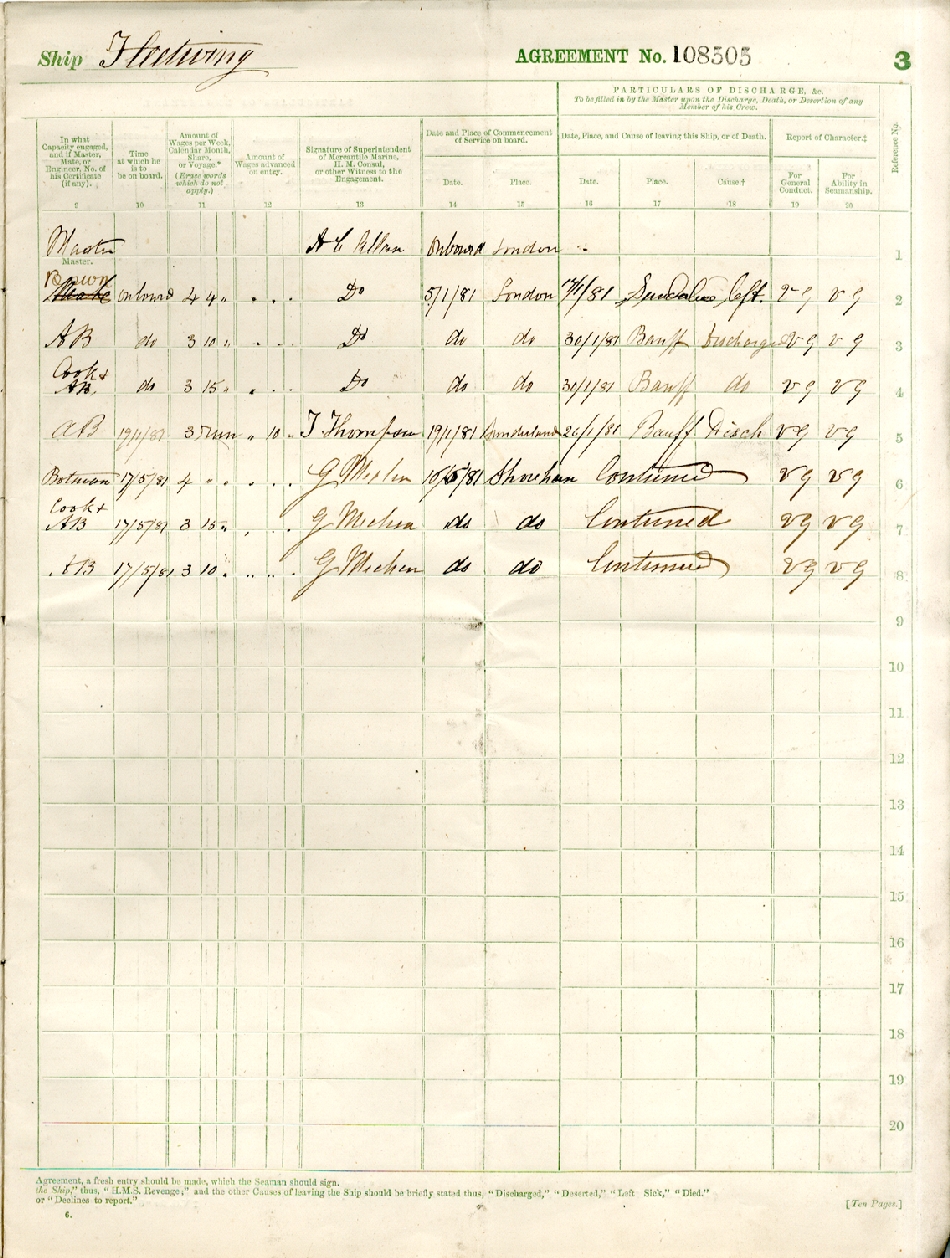 Ship Fleetwing AGREEMENT No. 108505 3
PARTICULARS OF DISCHARGE, &c.
To be filled in by the Master upon the Discharge, Death, or Desertion of any
Member of his Crew.
In what
Capacity engaged,
and if Master,
Mate, or
Engineer, No. of
his Certificate
(if any).
Time
at which he
is to
be on board.
Amount of
Wages per Week,
Calendar Month,
Share,
or Voyage.*
(Erase words
which do not
apply.)
Amount of
Wages advanced
on entry.
Signature of Superintendent
of Mercantile Marine,
H. M. Consul,
or other Witness to the
Engagement.
Date and Place of Commencement
of Service on board.
Date. Place.
Date, Place, and Cause of leaving this Ship, or of Death.
Date. Place. Cause †
Report of Character.‡
For
General
Conduct.
For
Ability in
Seamanship.
Reference No.
9 10 11 12 13 14 15 16 17 18 19 20
Master onboard London 1
Master.
Boswn
Mate onboard 4 4 " Do 5/1/81 London left. vg vg 2
AB do 3 10 " Do do do 30/1/81 Banff Discharged vg vg 3
Cook &
AB do 3 15 " Do do do 30/1/81 Banff do vg vg 4
AB 19/1/81 3 run 10 J Thompson 19/1/81 Sunderland Banff Disch vg vg 5
Botman 17/5/81 4 G Mechen Shoreham Continued vg vg 6
Cook &
AB 17/5/81 3 15 G Mechen do do Continued vg vg 7
AB 17/5/81 3 10 G Mechen do do Continued vg vg 8
9
10
11
12
13
14
15
16
17
18
19
20
Agreement, a fresh entry should be made, which the Seaman should sign.
the Ship," thus, "H.M.S. Revenge;" and the other Causes of leaving the Ship should be briefly stated thus, "Discharged," "Deserted," "Left Sick," "Died."
or "Declines to report."
6. [Ten Pages.]